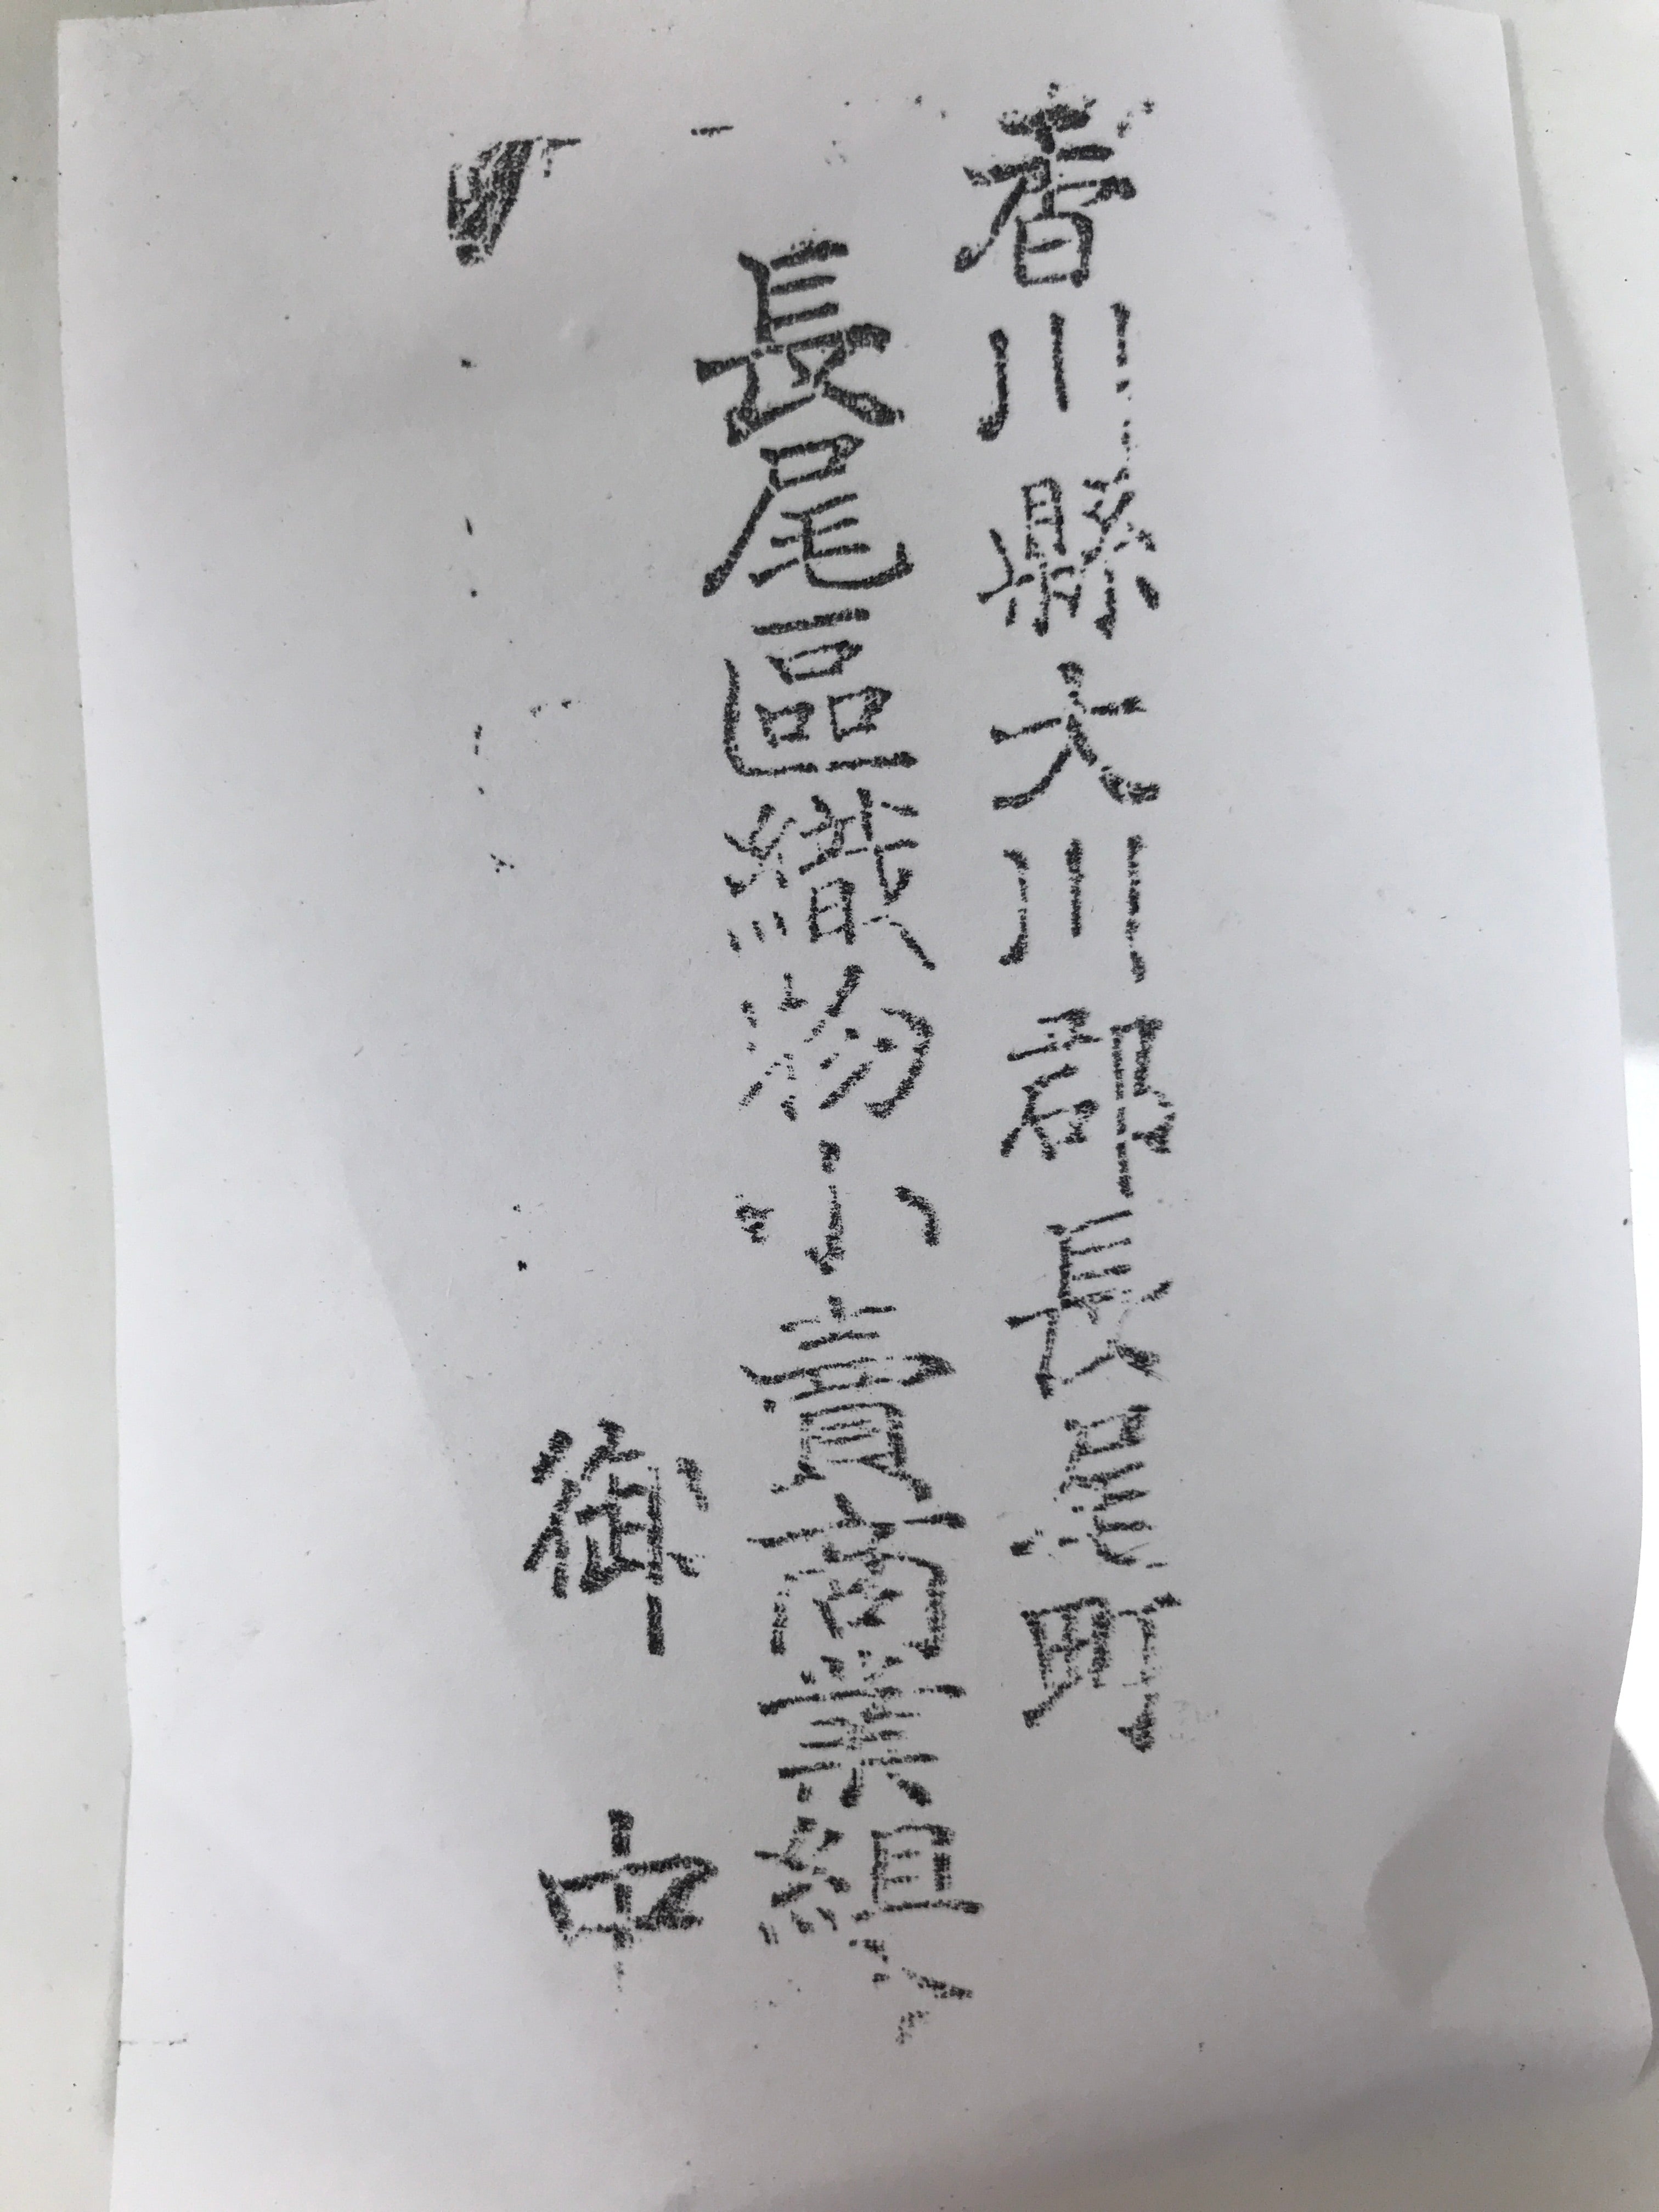 香川縣大川郡長尾町
長尾區織物小賣商業組
御中